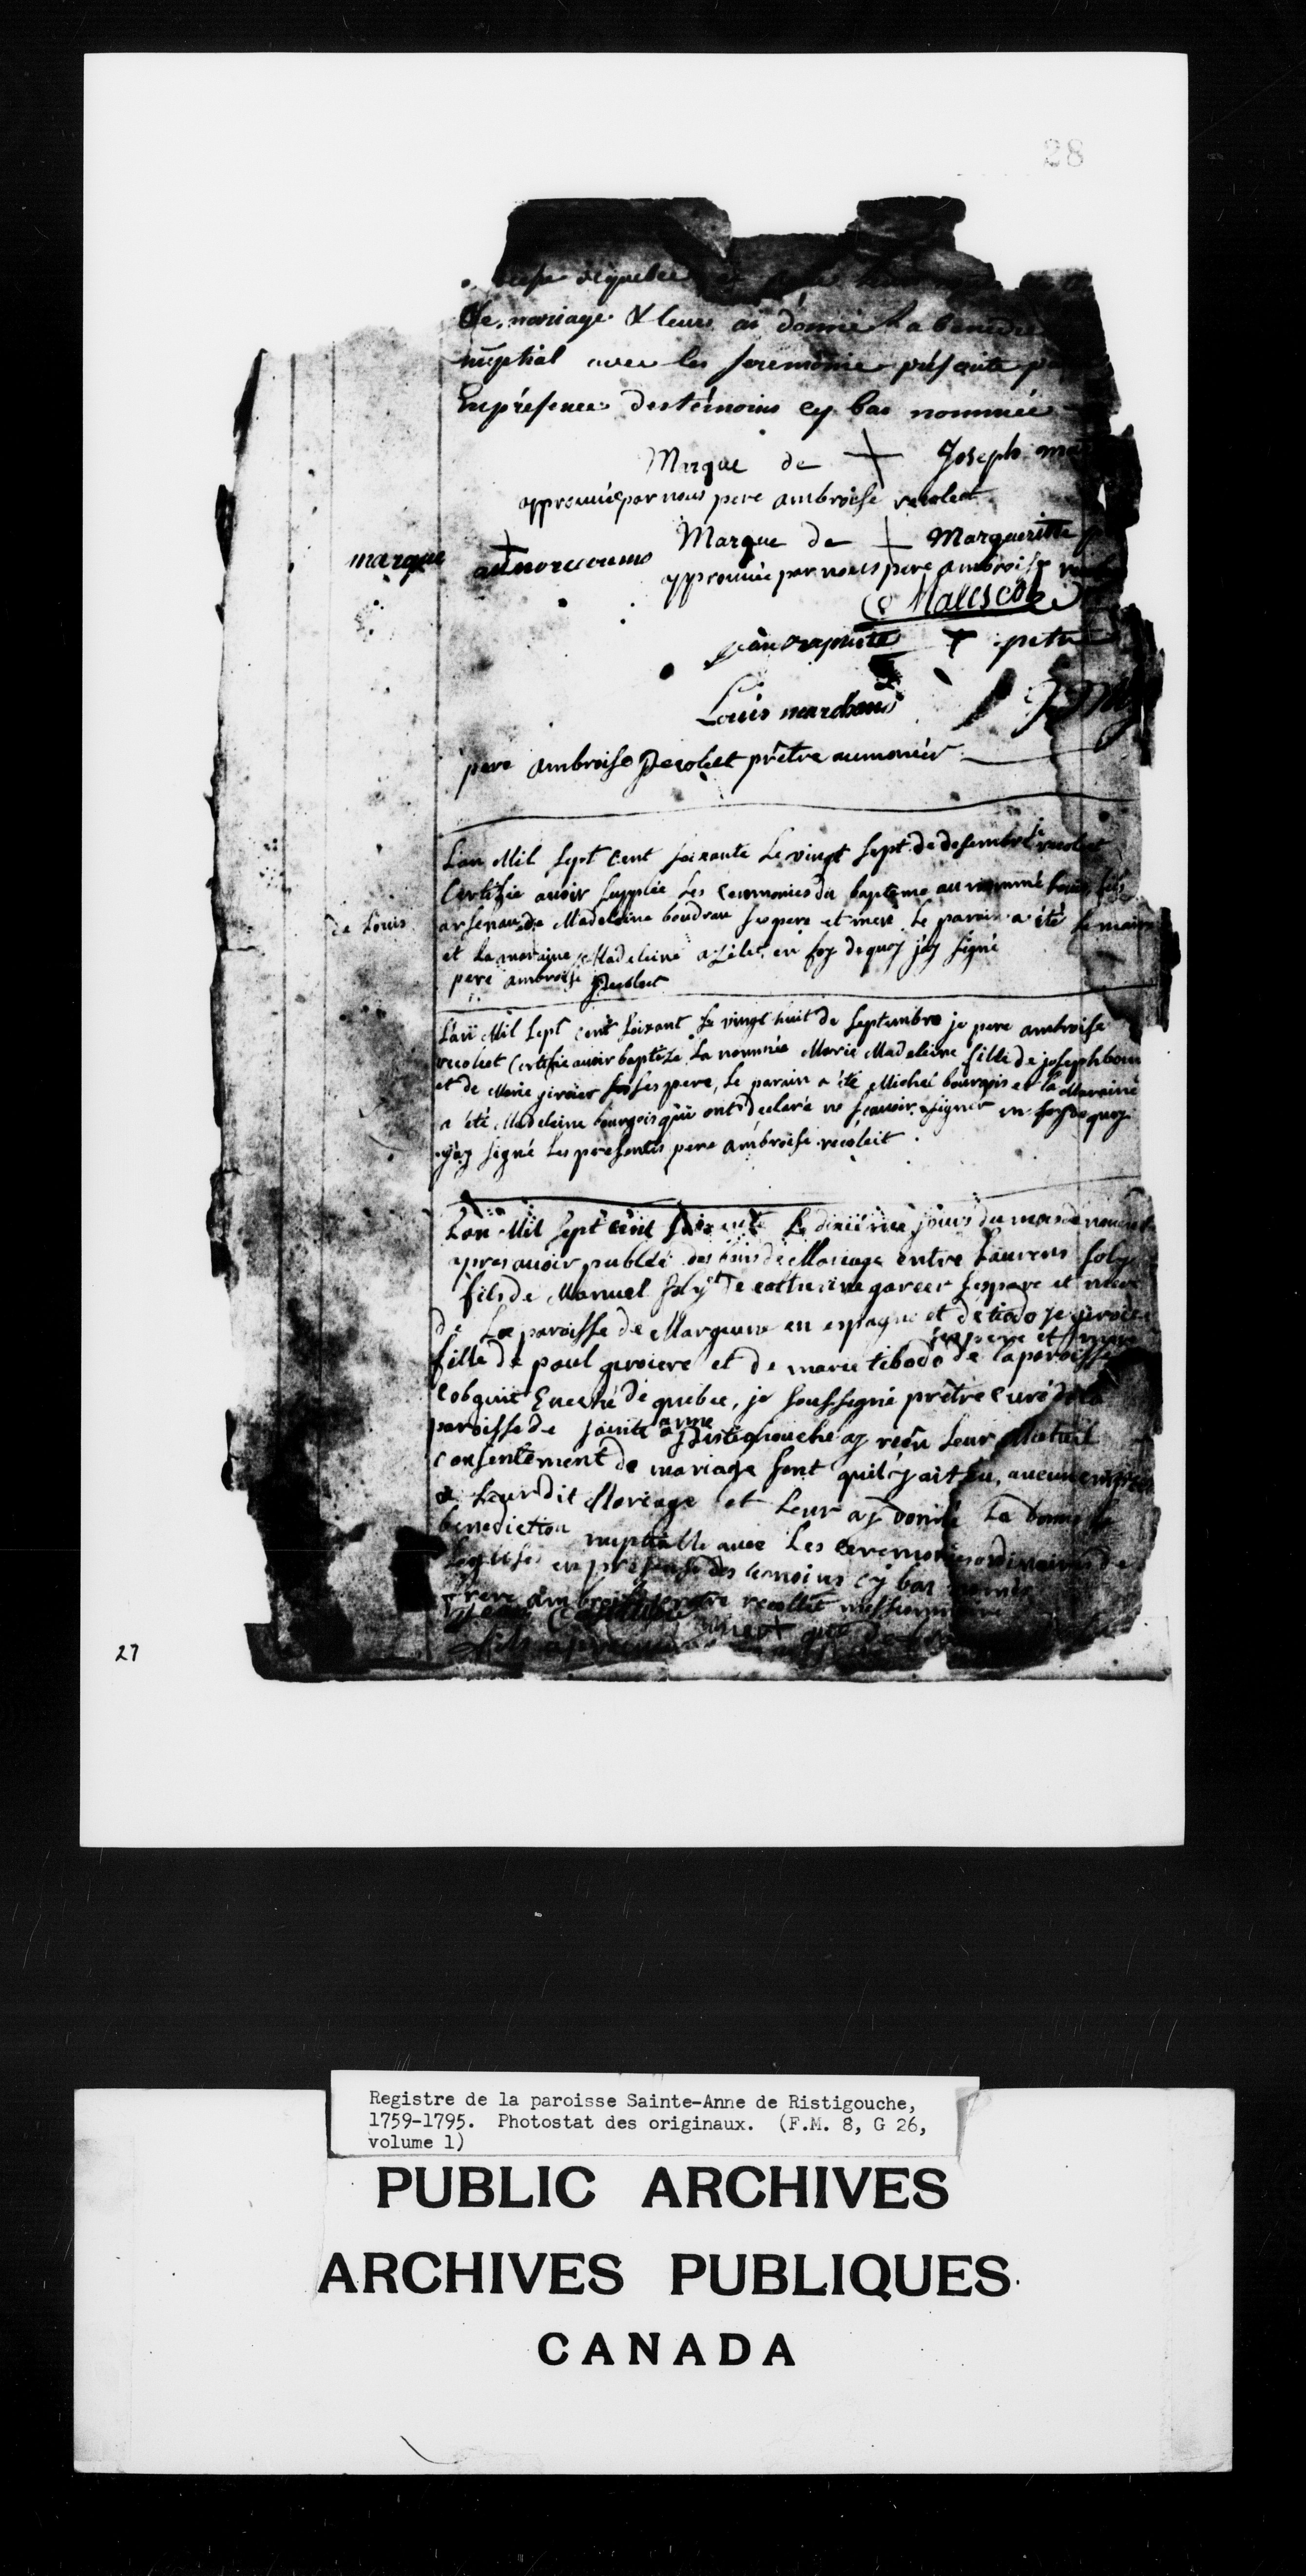 28
de quebec
de mariage & leurs ai donné la benedic
nuptial avec les seremonie préscrite p
En présence des témoins cy bas nommée
Marque de + Joseph ma
approuvée par nous pere ambroise recolect
Marque de + Margueritte
marque +
approuvée par nous pere ambroise
Malescot
petre
Louis marchand
pere ambroise Recolect prêtre aumonier
L'an Mil sept cent soixante Le vingt sept de desembre je recolect
Certifie avoir supplée Les Ceremonies du bapteme au nommé Louis fils
de Louis
arsenau de Madeleine boudrau ses pere et mere Le parain a été
et La maraine Madeleine en foy de quoy j'ay signé
pere ambroise Recolect
L'an Mil sept cent soixant Le vingt huit de septembre je pere ambroise
recolect Certifie avoir baptize La nommée Marie Madeleine fille de joseph
et de Marie ses pere, Le parain a été Michel bourgois et la Maraine
a été Madeleine bourgois qui ont declaré ne scavoir signer en foy de quoy
j'ay signé Les presentes pere ambroise recoleit
L'an Mil sept cent soixante Le jours du mois de
apres avoir publié des bans de Mariage entre Laurens soly
fils de Manuel soly et de catherine garcer ses pere et mere
de La paroisse de en espagne et de
ses pere et mere
fille de paul giroiere et de marie tibodo de la paroisse
Cobquit Eveché de quebec, je soussigné prêtre curé de la
paroisse de sainte anne ristigouche ay reçu Leur Mutuel
consentement de mariage sont quil y ait eu aucun
a Leur dit Mariage et Leur ay donné La
benediction nuptialle avec Les ceremonies ordinaires de
Leglise en presence des temoins cy bas només
frere ambroise recollet missionnaire
27
Registre de la paroisse Sainte-Anne de Ristigouche,
1759-1795. Photostat des originaux. (F.M. 8, G 26,
volume 1)
PUBLIC ARCHIVES
ARCHIVES PUBLIQUES
CANADA